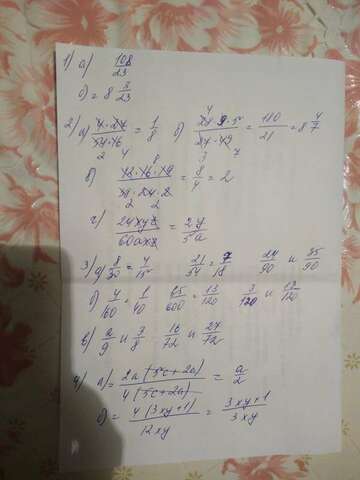 1) а) 108/23
б) = 8 3/23
2) а) 4·27/54·16 = 1/8 б) 24·9·5/27·42 = 180/21 = 8 4/7
в) 8/4 = 2
г) 24xyz/60axz = 2y/5a
3) а) 8/30 = 4/15 21/54 = 7/18 24/90 и 35/90
б) 4/160 = 1/40 65/600 = 13/120 3/120 и 13/120
в) 2/9 и 3/8 16/72 и 27/72
4) а) = 2a(5c+2a)/4(5c+2a) = a/2
б) = 4(3xy+1)/12xy = 3xy+1/3xy